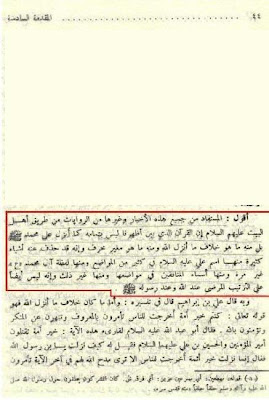 ٤٤ المقدمة السادسة
أقول : المستفاد من جميع هذه الأخبار وغيرها من الروايات من طريق أهل
البيت عليهم السلام إن القرآن الذي بين أظهرنا ليس بتمامه كما أنزل على محمد ﷺ
بل منه ما هو خلاف ما أنزل الله ومنه ما هو مغير محرف وإنه قد حذف عنه أشياء
كثيرة منها اسم علي عليه السلام في كثير من المواضع ومنها لفظة آل محمد
غير مرة ومنها أسماء المنافقين في مواضعها ومنها غير ذلك وإنه ليس أيضاً
على الترتيب المرضي عند الله وعند رسوله ﷺ
وبه قال علي بن إبراهيم قال في تفسيره : وأما ما كان خلاف ما أنزل الله فهو
قوله تعالى : كنتم خير أمة أخرجت للناس تأمرون بالمعروف وتنهون عن المنكر
وتؤمنون بالله . فقال أبو عبد الله عليه السلام لقارىء هذه الآية : خير أمة تقتلون
علي والحسين بن علي عليهم السلام فقيل له كيف نزلت يا ابن رسول الله
فقال إنما نزلت خير أئمة أخرجت للناس ألا ترى مدح الله لهم في آخر الآية تأمرون